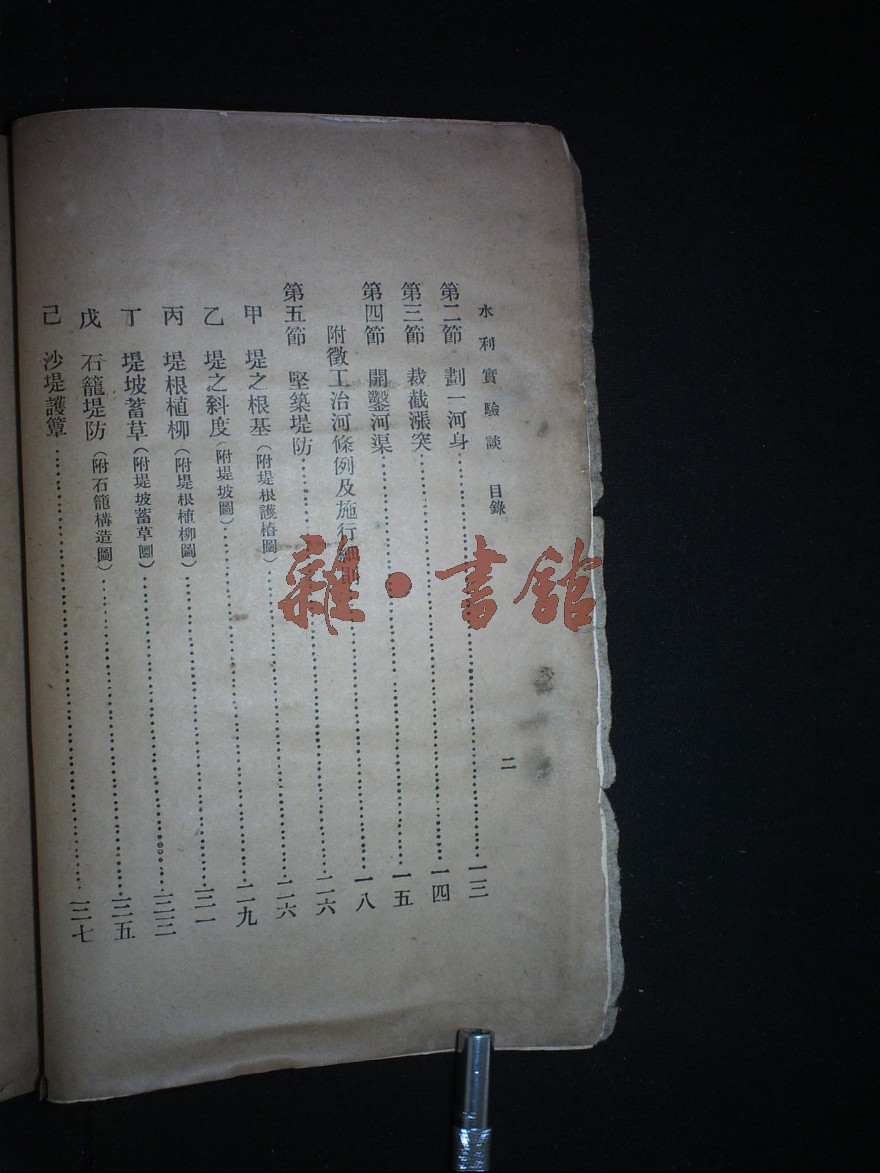 水利實驗談 目錄 二
第二節 劃一河身 一三
第三節 裁截漲突 一四
第四節 開鑿河渠 一五
附徵工治河條例及施行細則 一八
第五節 堅築堤防 二六
甲 堤之根基(附堤根護樁圖) 二六
乙 堤之斜度(附堤坡圖) 二九
丙 堤根植柳(附堤根植柳圖) 三一
丁 堤坡蓄草(附堤坡蓄草圖) 三三
戊 石籠堤防(附石籠構造圖) 三五
己 沙堤護簟 三七
雜·書館